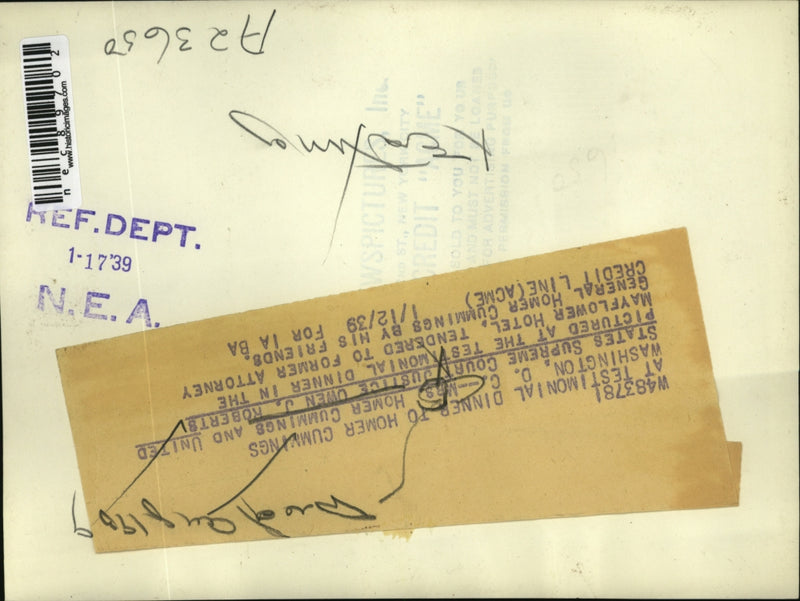 A23650
nec89702
www.historicimages.com
REF. DEPT.
1-17'39
N.E.A.
WSPICTURES, Inc.
ST., NEW YORK CITY
CREDIT "ACME"
SOLD TO YOU FOR YOUR
AND MUST NOT BE LOANED
PERMISSION FROM US
W483781
AT TESTIMONIAL DINNER TO HOMER CUMMINGS
WASHINGTON, D. C. -- MRS. HOMER CUMMINGS AND UNITED
STATES SUPREME COURT JUSTICE OWEN J. ROBERTS
PICTURED AT THE TESTIMONIAL DINNER IN THE
MAYFLOWER HOTEL, TENDERED TO FORMER ATTORNEY
GENERAL HOMER CUMMINGS BY HIS FRIENDS.
CREDIT LINE (ACME) 1/12/39 FOR 1A BA